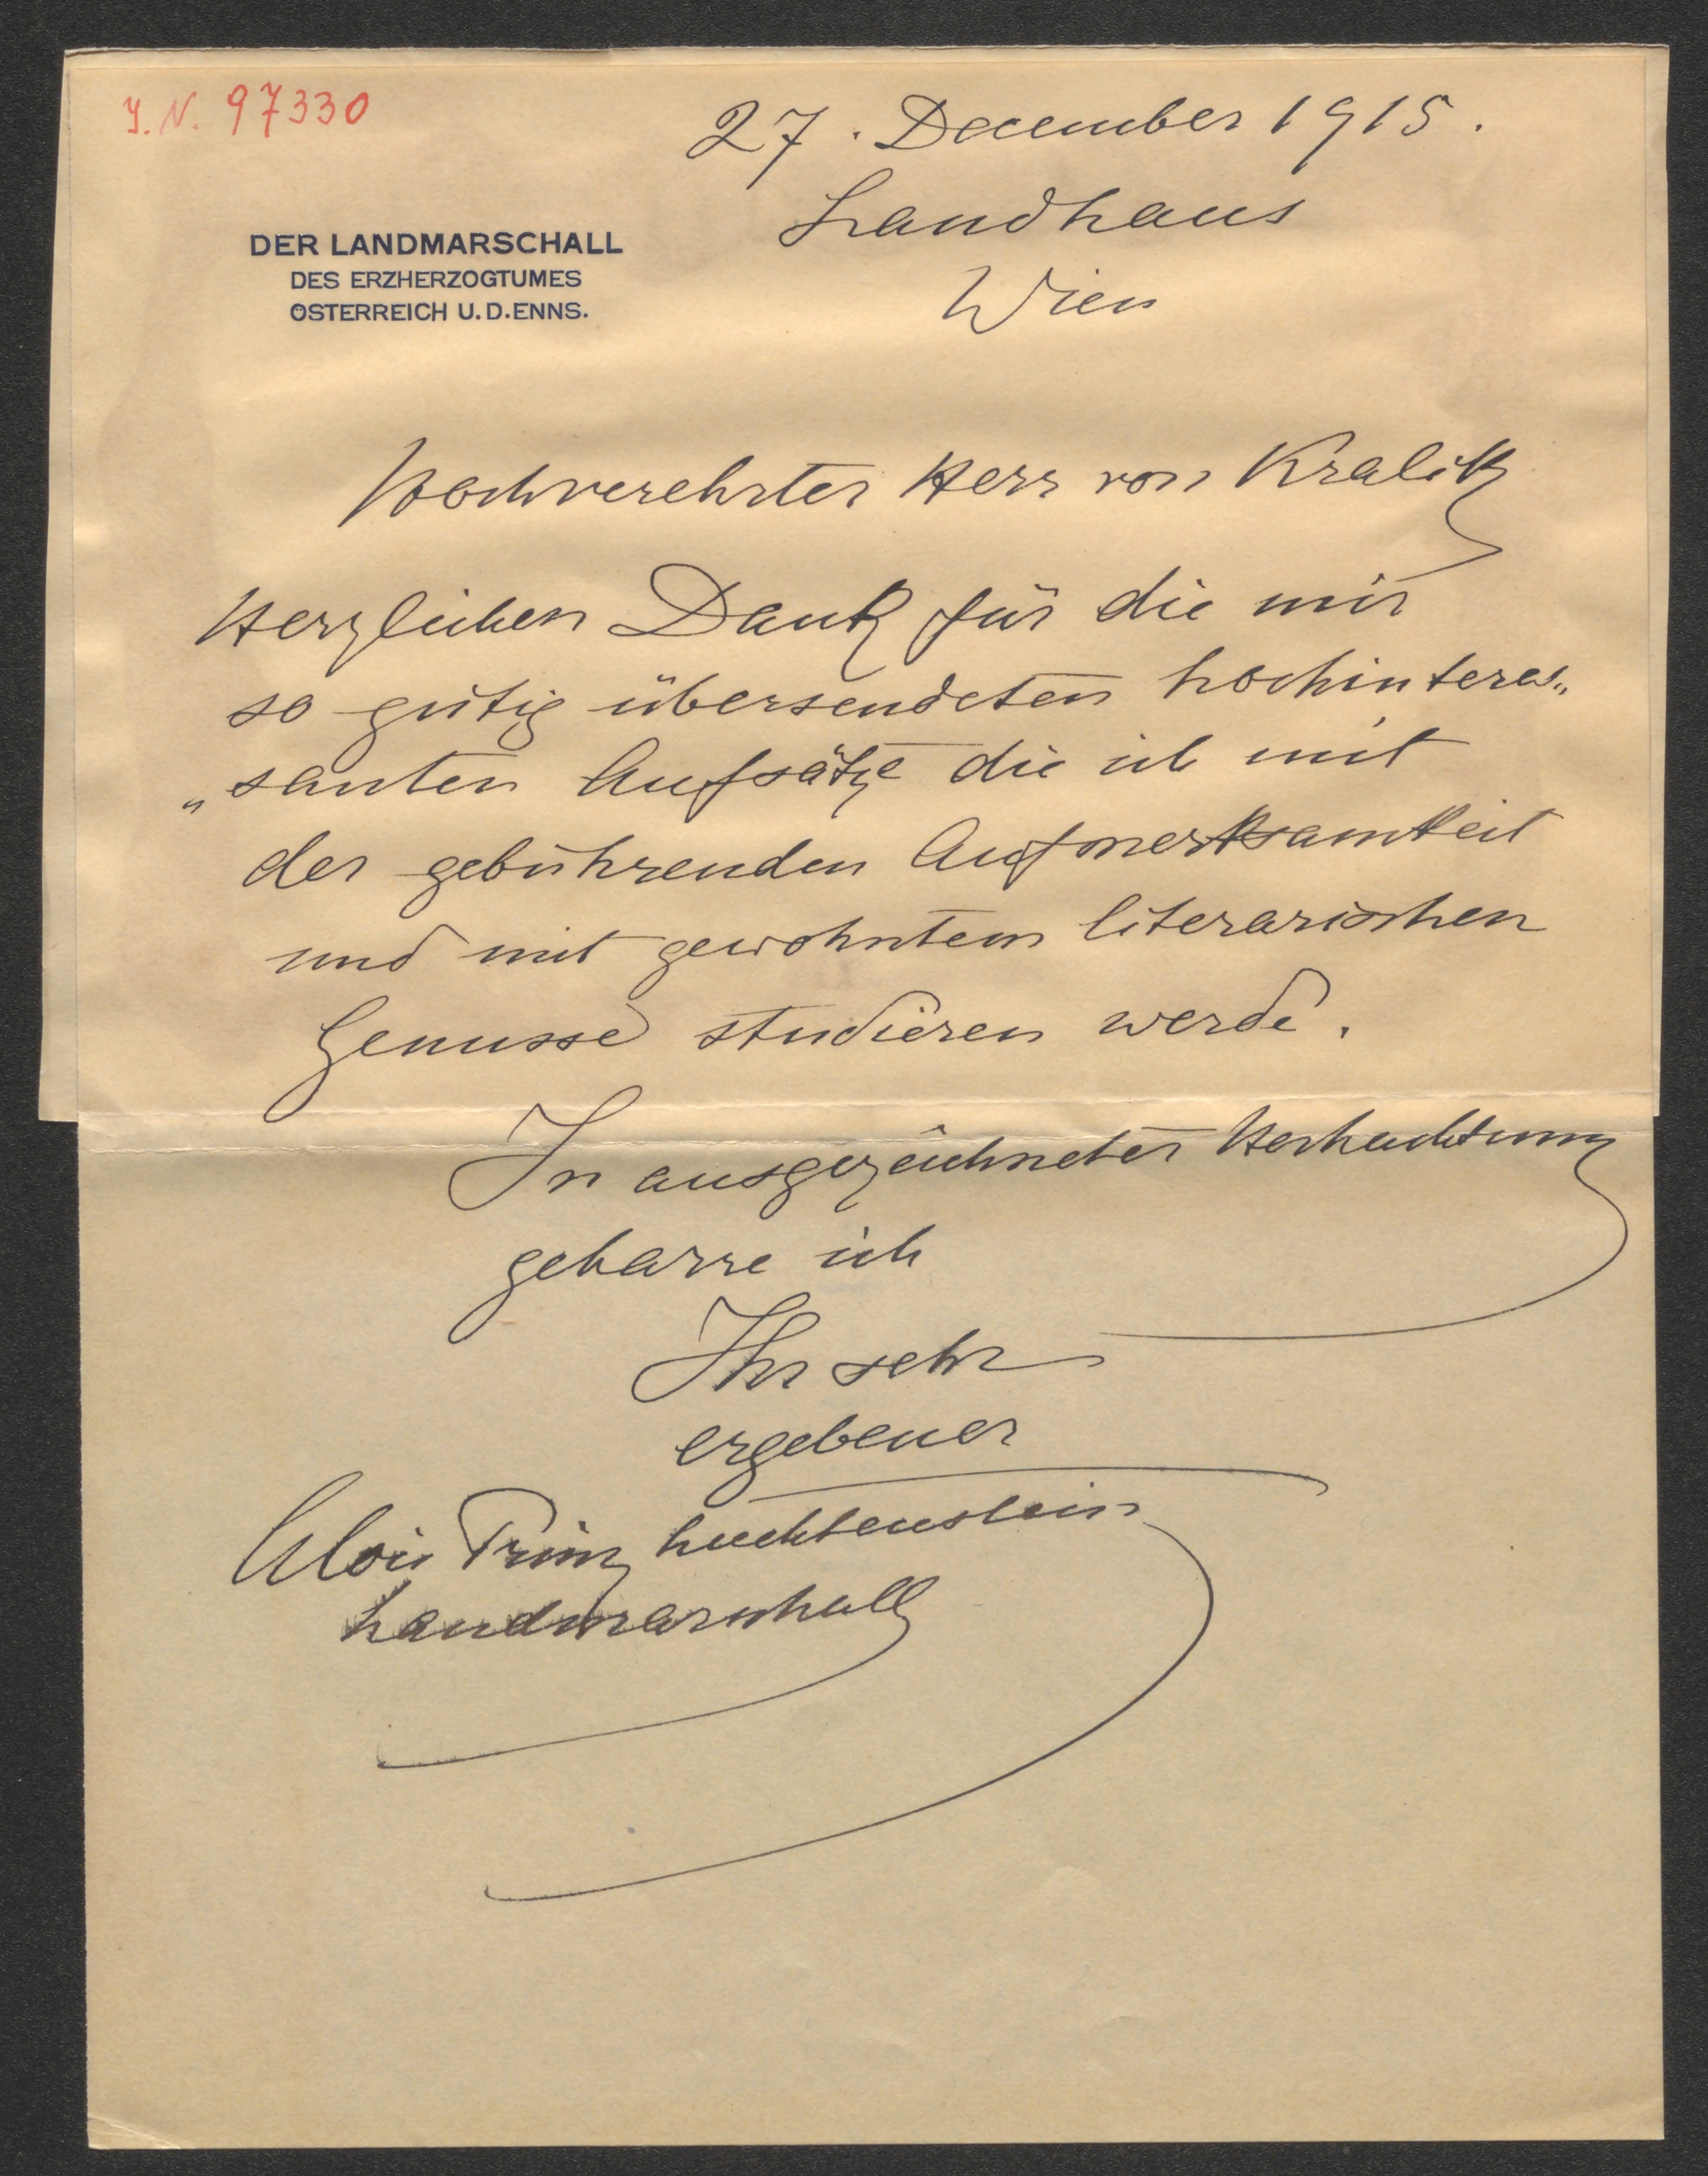 I. N. 97330
27. December 1915.
Landhaus
Wien
DER LANDMARSCHALL
DES ERZHERZOGTUMES
ÖSTERREICH U. D. ENNS.
Hochverehrter Herr von Kralik
Herzlichen Dank für die mir
so gütig übersendeten hochinteres„
„santen Aufsätze die ich mit
der gebührenden Aufmerksamkeit
und mit gewohntem literarischen
Genusse studieren werde.
In ausgezeichneter Hochachtung
geharre ich
Ihr sehr
ergebener
Alois Prinz Liechtenstein
Landmarschall